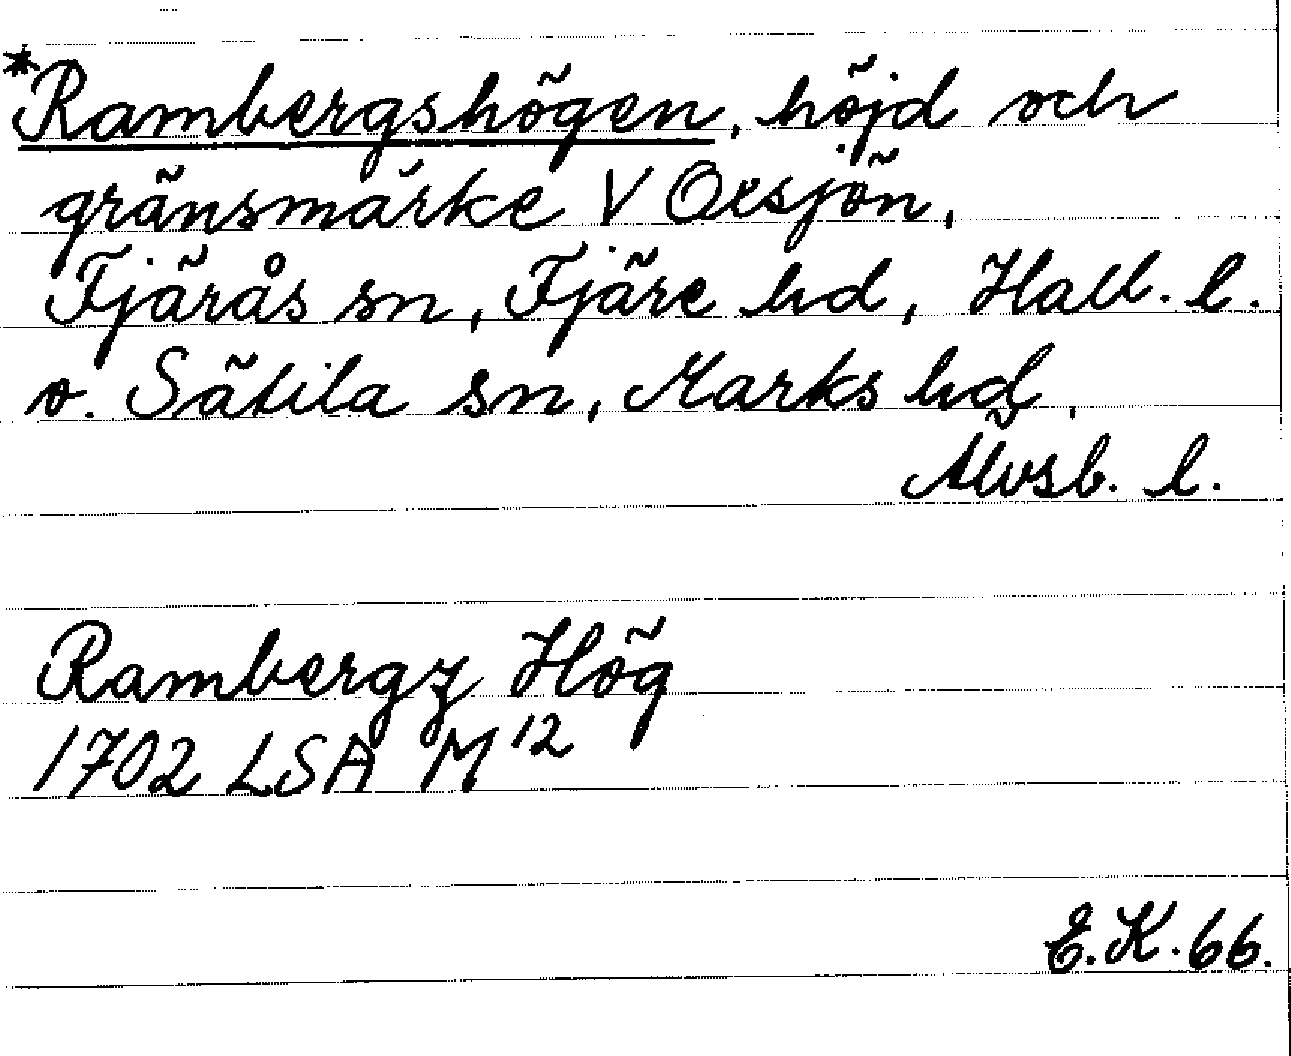 *Rambergshögen, höjd och
gränsmärke V Oxsjön,
Fjärås sn, Fjäre hd, Hall. l.
o. Sätila sn, Marks hd,
Älvsb. l.
Rambergz Hög
1702 LSA M 12
E.K. 66.